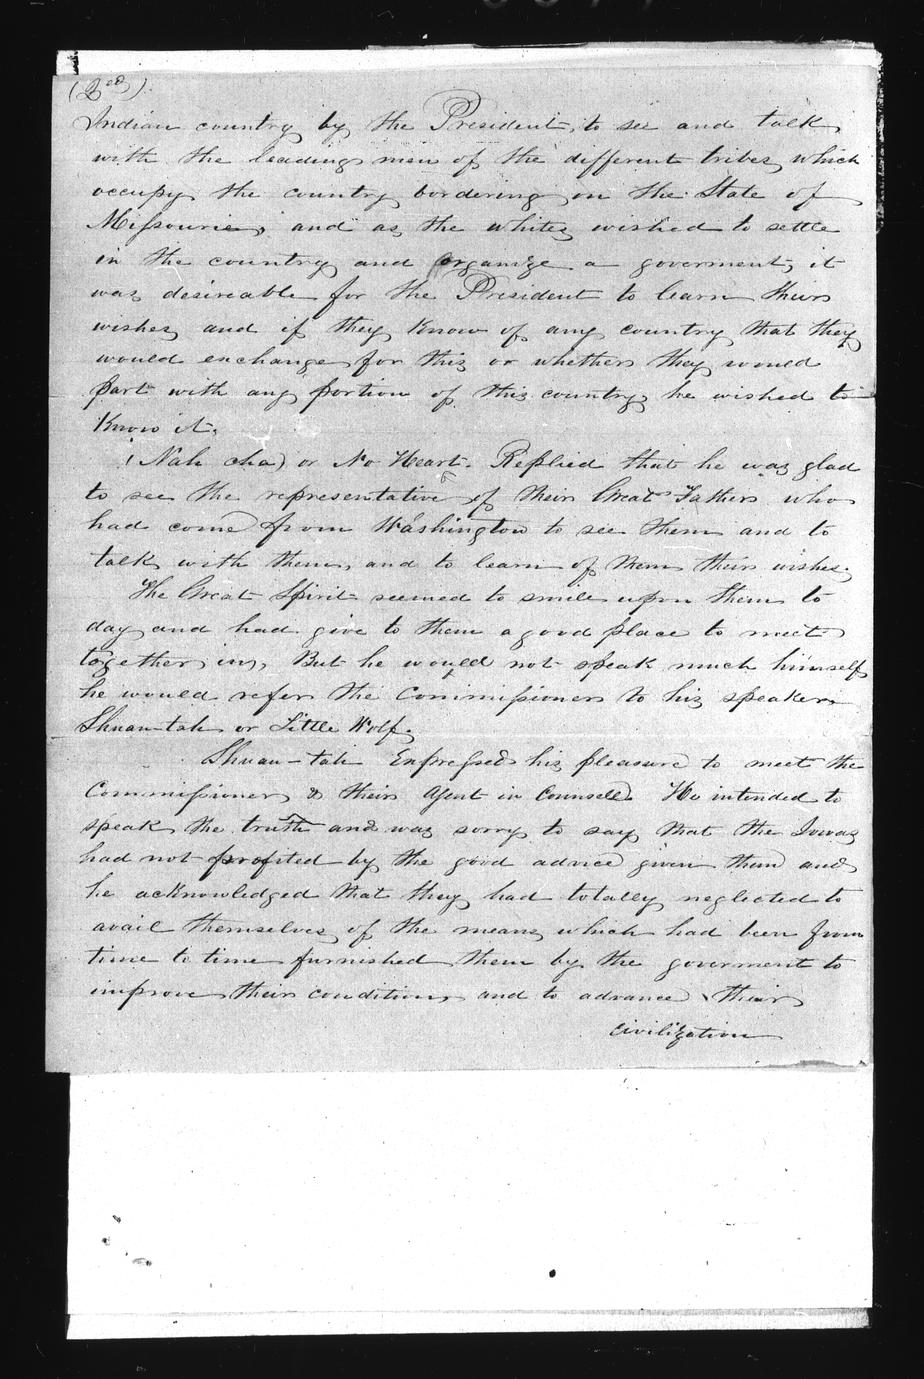 (2ed).
Indian country by the President, to see and talk
with the leading men of the different tribes which
occupy the country bordering on the State of
Missourie, and as the whites wished to settle
in the country and organize a goverment, it
was desireable for the President to learn their
wishes and if they know of any country that they
would exchange for this or whether they would
part with any portion of this country, he wished to
Know it.
(Nah cha) or No Heart. Replied that he was glad
to see the representative of their Great Father who
had come from Washington to see them and to
talk with them, and to learn of them their wishes.
The Great Spirit seemed to smile upon them to
day and had give to them a good place to meet
together in, But he would not speak much himself
he would refer the Commissioner to his speaker
Shuan-tah or Little Wolf.
Shuan-tah Expressed his pleasure to meet the
Commissioner & their Agent in Counsell. He intended to
speak the truth and was sorry to say that the Iowas
had not profited by the good advice given them and
he acknowledged that they had totally neglected to
avail themselves of the means which had been from
time to time furnished them by the goverment to
improve their condition and to advance their
civilization